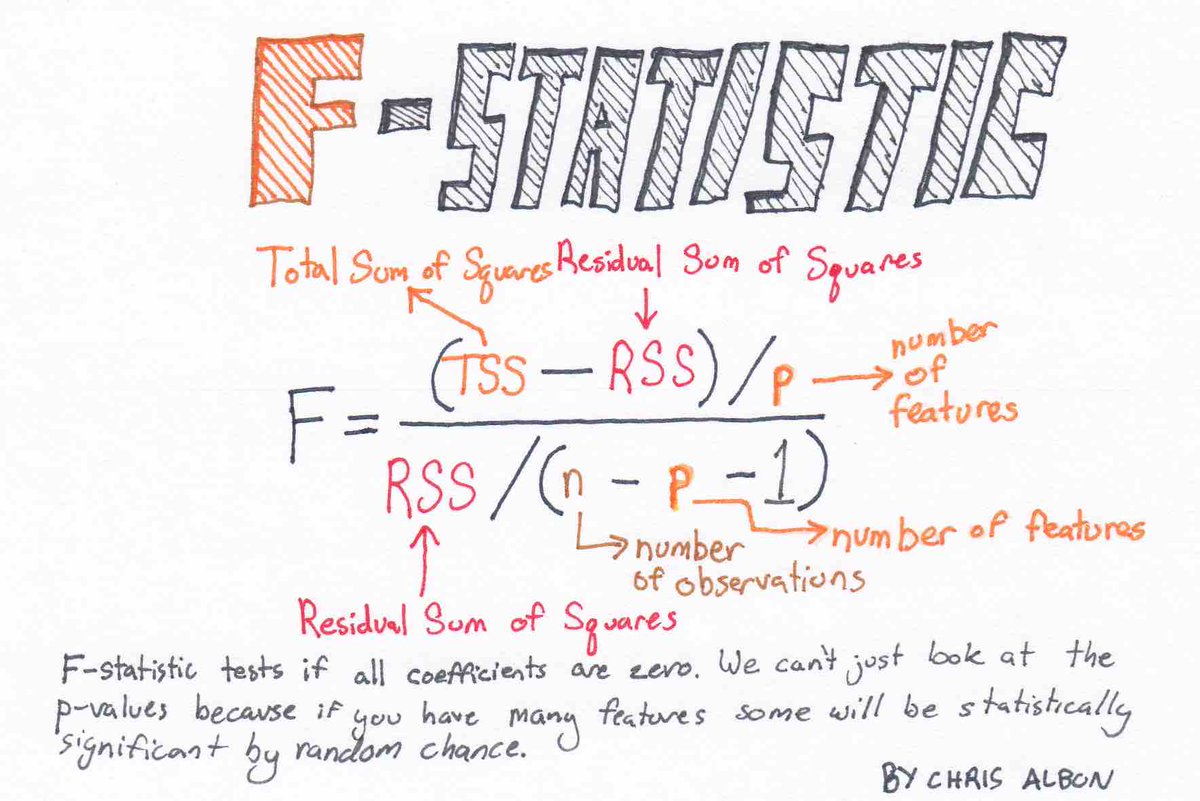 F-STATISTIC
Total Sum of Squares Residual Sum of Squares
(TSS - RSS)/p
number
of
features
F =
RSS/(n - p - 1)
number of features
number
of observations
Residual Sum of Squares
F-statistic tests if all coefficients are zero. We can't just look at the
p-values because if you have many features some will be statistically
significant by random chance.
BY CHRIS ALBON